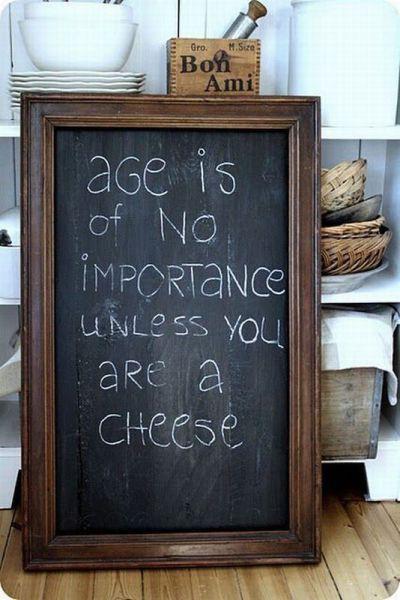 Gro. M.Size
Bon
Ami
age is
of NO
iMPORTaNCE
uNLess you
aRe a
CHeese